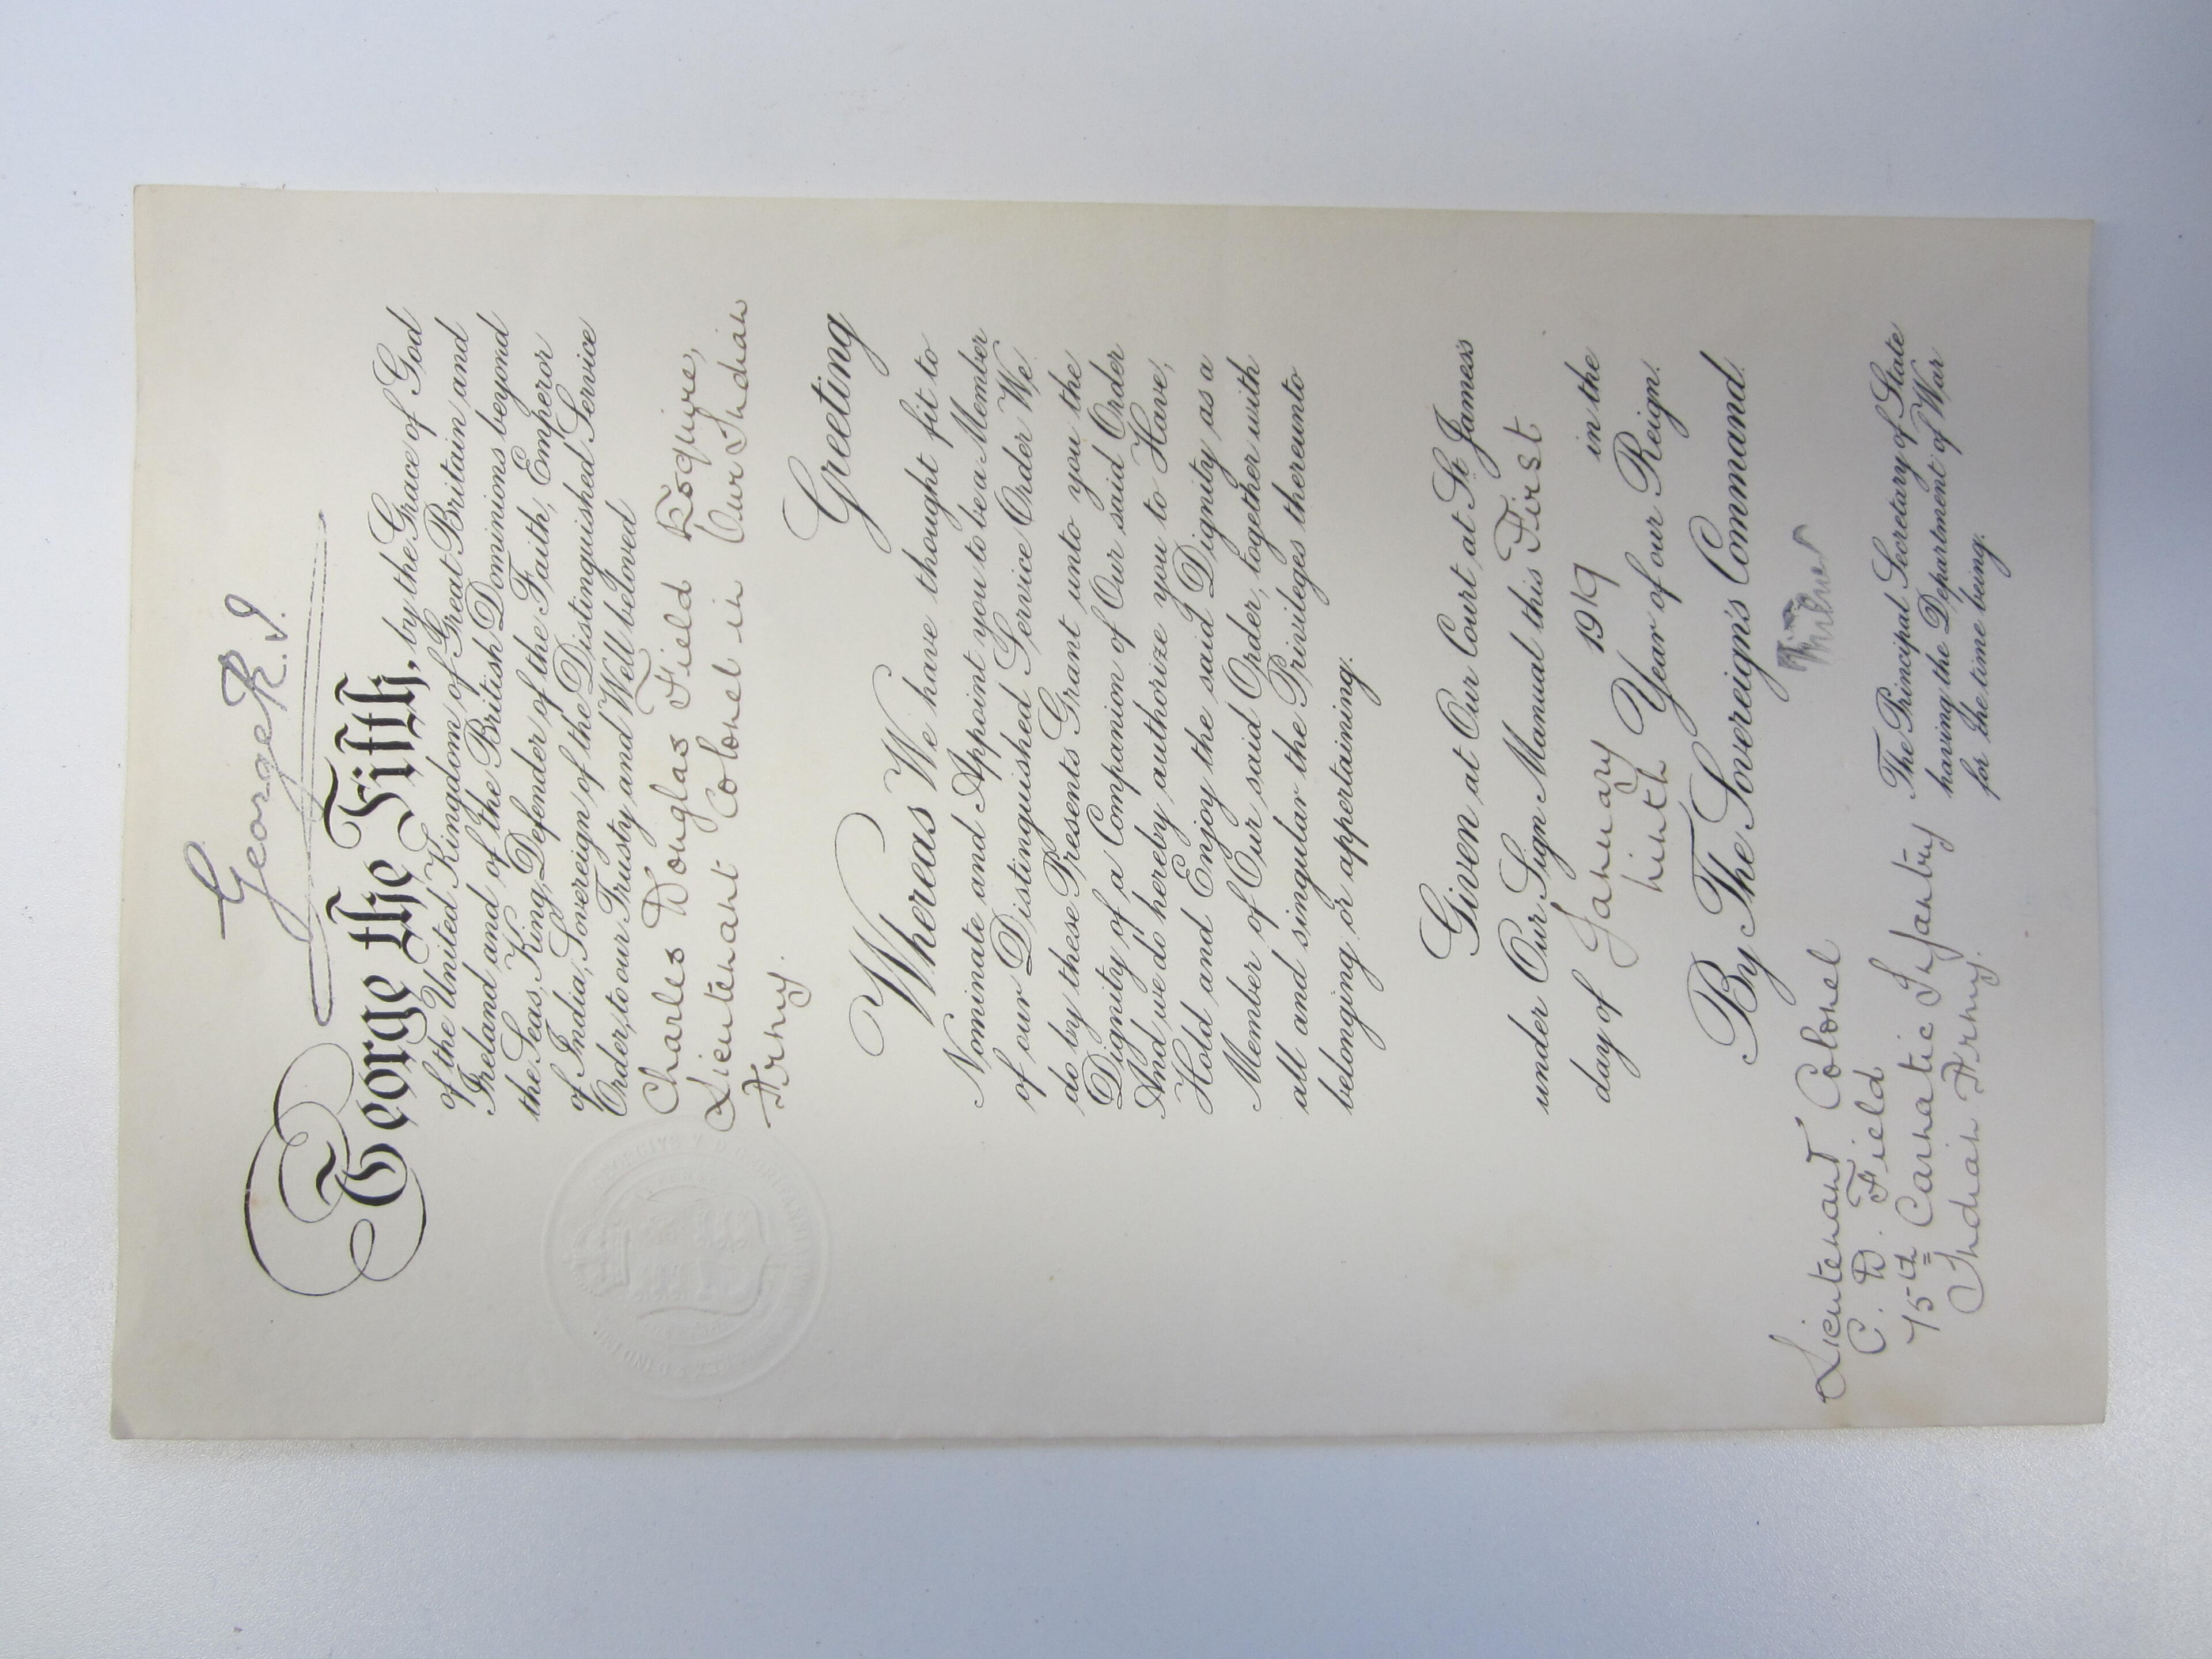 George R.I.
George the Fifth, by the Grace of God
of the United Kingdom of Great Britain and
Ireland and of the British Dominions beyond
the Seas, King, Defender of the Faith, Emperor
of India, Sovereign of the Distinguished Service
Order, to our Trusty and Well beloved
Charles Douglas Field Esquire,
Lieutenant Colonel in Our Indian
Army.
Greeting
Whereas We have thought fit to
Nominate and Appoint you to be a Member
of our Distinguished Service Order We
do by these Presents Grant unto you the
Dignity of a Companion of Our said Order
And we do hereby authorize you to Have,
Hold and Enjoy the said Dignity as a
Member of Our said Order, together with
all and singular the Privileges thereunto
belonging or appertaining.
Given at Our Court at St. James's
under Our Sign Manual this First
day of January 1919 in the
ninth Year of our Reign.
By The Sovereign's Command.
Milner
Lieutenant Colonel
C. D. Field
75th Carnatic Infantry
Indian Army.
The Principal Secretary of State
having the Department of War
for the time being.